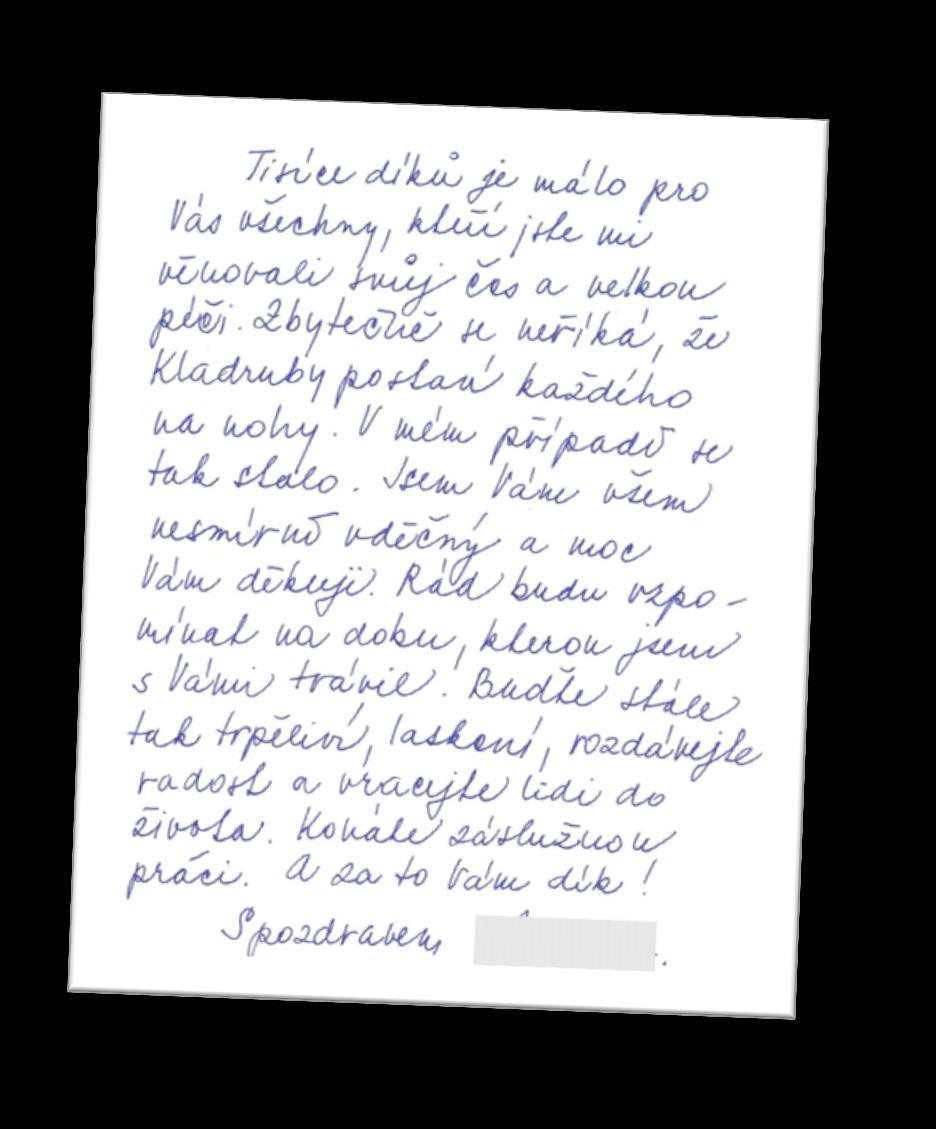 Tisíce díků je málo pro
Vás všechny, kteří jste mi
věnovali svůj čas a velkou
péči. Zbytečně se neříká, že
Kladruby postaví každého
na nohy. V mém případě se
tak stalo. Jsem Vám všem
nesmírně vděčný a moc
Vám děkuji. Rád budu vzpo-
mínat na dobu, kterou jsem
s Vámi trávil. Buďte stále
tak trpěliví, laskaví, rozdávejte
radost a vracejte lidi do
života. Konáte záslužnou
práci. A za to Vám dík!
S pozdravem